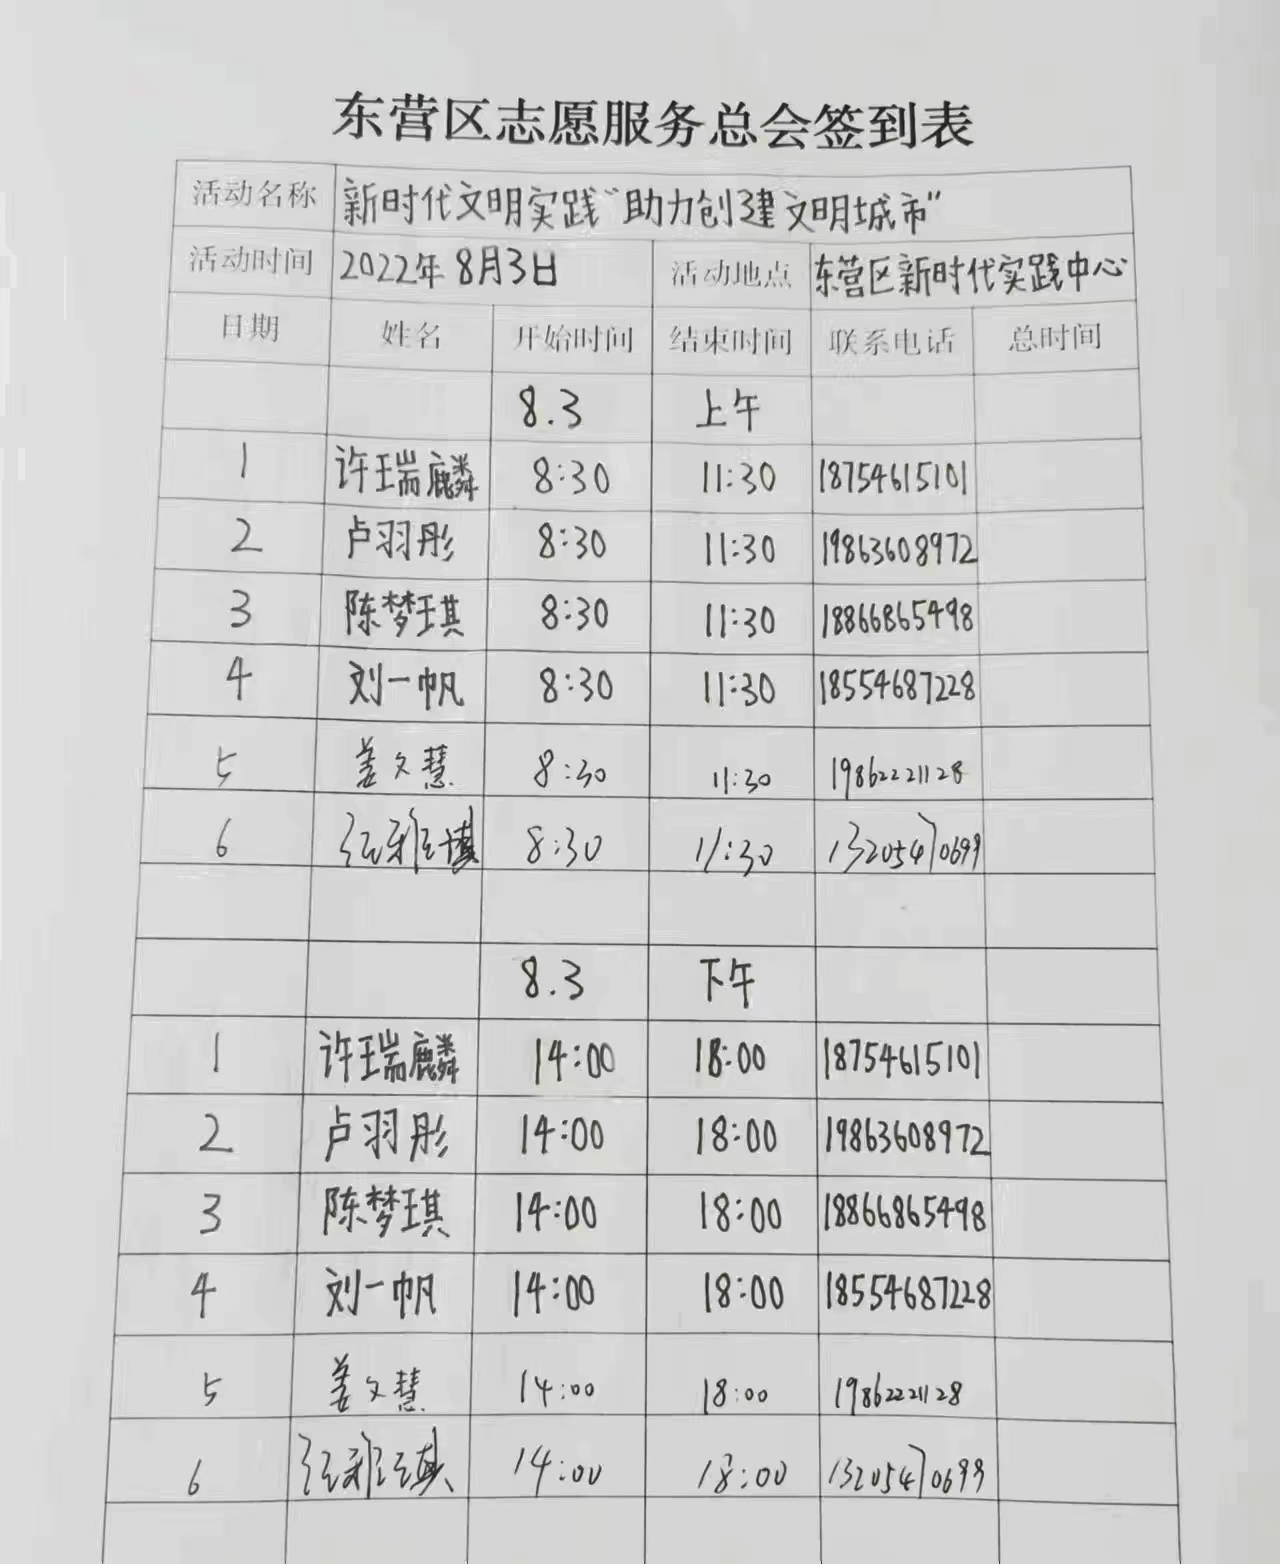 东营区志愿服务总会签到表
活动名称 新时代文明实践"助力创建文明城市"
活动时间 2022年8月3日 活动地点 东营区新时代实践中心
日期 姓名 开始时间 结束时间 联系电话 总时间
8.3 上午
1 许瑞麟 8:30 11:30 18754615101
2 卢羽彤 8:30 11:30 19863608972
3 陈梦琪 8:30 11:30 18866865498
4 刘一帆 8:30 11:30 18554687228
5 姜文慧 8:30 11:30 19862221128
6 8:30 11:30 13205470699
8.3 下午
1 许瑞麟 14:00 18:00 18754615101
2 卢羽彤 14:00 18:00 19863608972
3 陈梦琪 14:00 18:00 18866865498
4 刘一帆 14:00 18:00 18554687228
5 姜文慧 14:00 18:00 19862221128
6 14:00 18:00 13205470699